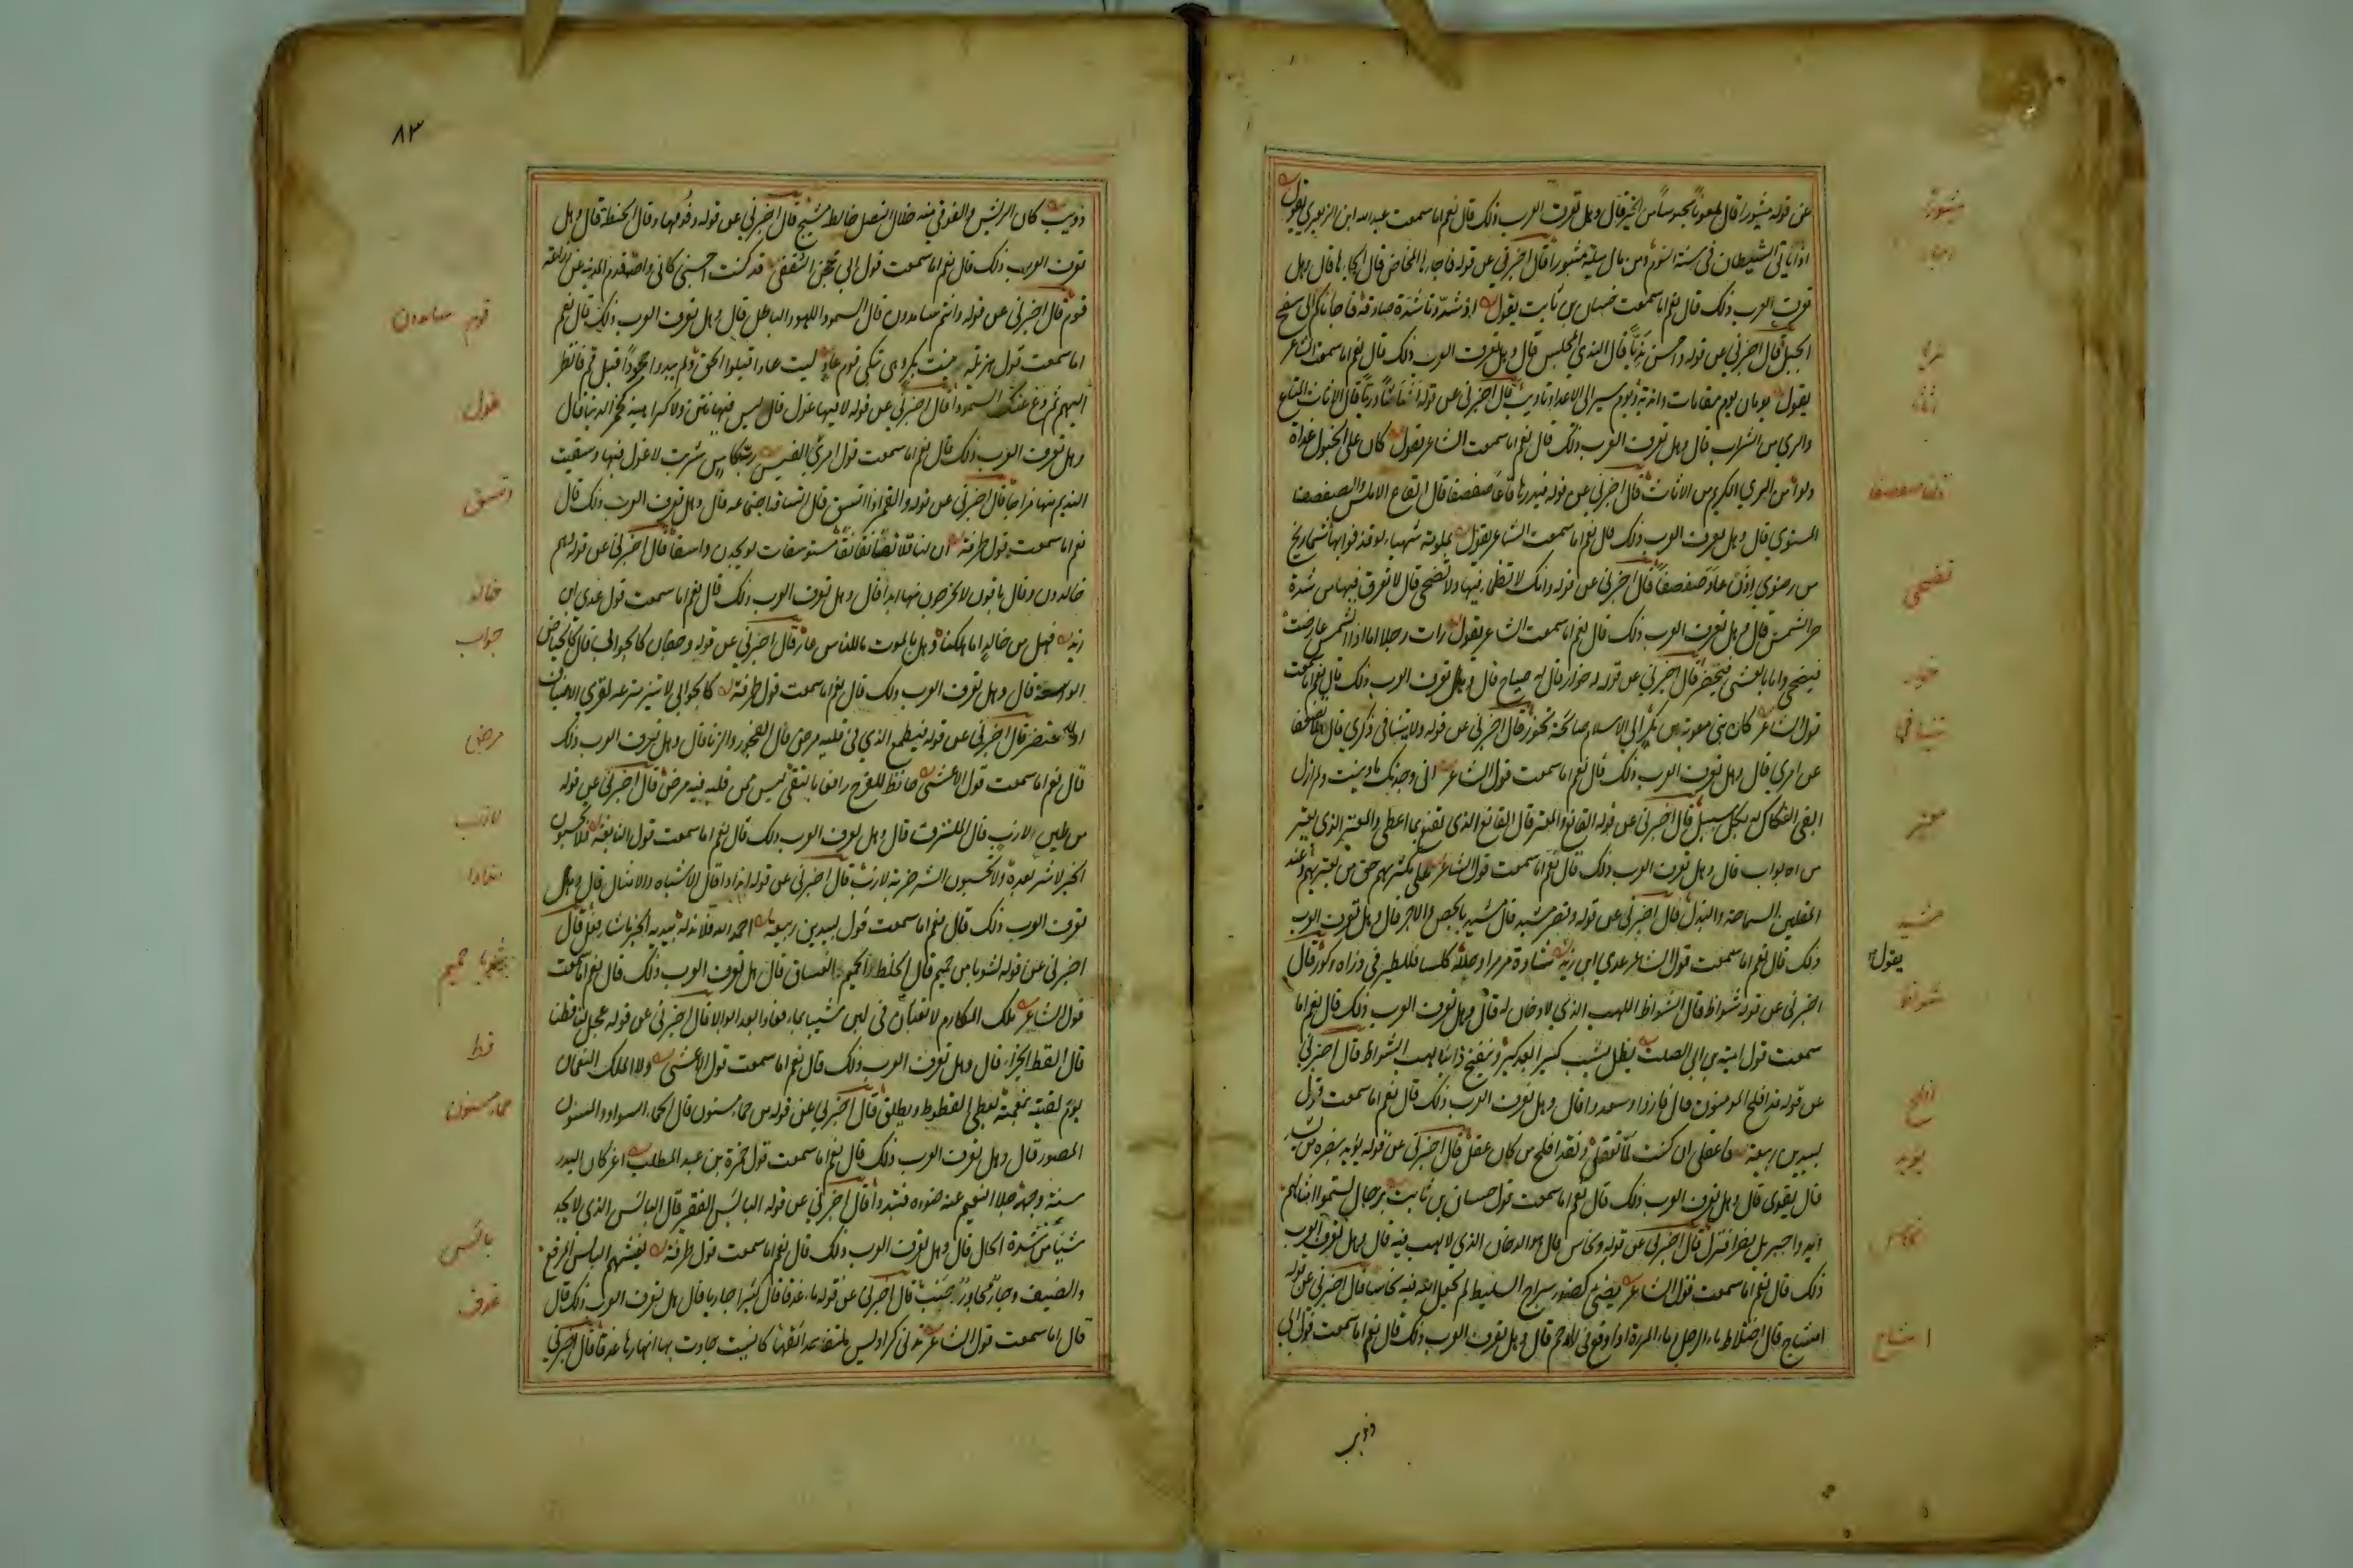 عن قوله مثبورا قال ملعونا محبوسا من الخير قال وهل تعرف العرب ذلك قال نعم اما سمعت عبد الله ابن الزبعرى يقول
اذ اتاني الشيطان في سنة النوم ومن مال ميله مثبورا قال اخبرني عن قوله فاجاءها المخاض قال الجاها قال وهل
تعرف العرب ذلك قال نعم اما سمعت حسان بن ثابت يقول اذ شددنا شدة صادقة فاجاناكم الى سفح
الجبل قال اخبرني عن قوله واحسن نديا قال الندي المجلس قال وهل تعرف العرب ذلك قال نعم اما سمعت الشاعر
يقول يومان يوم مقامات واندية ويوم سير الى الاعداء تاويب قال اخبرني عن قوله اثاثا وريا قال الاثاث المتاع
والري من الشراب قال وهل تعرف العرب ذلك قال نعم اما سمعت الشاعر يقول كان على الحمول غداة
ولوا من الري الكريم من الاثاث قال اخبرني عن قوله فيذرها قاعا صفصفا قال القاع الاملس والصفصف
المستوي قال وهل تعرف العرب ذلك قال نعم اما سمعت الشاعر يقول بملمومة شهباء لو قذفوا بها شماريخ
من رضوى اذن عاد صفصفا قال اخبرني عن قوله وانك لا تظماء فيها ولا تضحى قال لا تعرق فيها من شدة
حر الشمس قال وهل تعرف العرب ذلك قال نعم اما سمعت الشاعر يقول رات رجلا اما اذا الشمس عارضت
فيضحى واما بالعشي فيخصر قال اخبرني عن قوله له خوار قال له صياح قال وهل تعرف العرب ذلك قال نعم اما سمعت
قول الشاعر كان بني معوية بن بكر الى الاسلام صائحة تخور قال اخبرني عن قوله ولا تنيا في ذكري قال لا تضعفا
عن امري قال وهل تعرف العرب ذلك قال نعم اما سمعت قول الشاعر اني وجدتك ما ونيت ولم ازل
ابغي الفكاك له بكل سبيل قال اخبرني عن قوله القانع والمعتر قال القانع الذي يقنع بما اعطي والمعتر الذي يعتر
من الابواب قال وهل تعرف العرب ذلك قال نعم اما سمعت قول الشاعر على مكثريهم حق من يعتريهم وعند
المقلين السماحة والبذل قال اخبرني عن قوله وقصر مشيد قال مشيد بالجص والاجر قال وهل تعرف العرب
ذلك قال نعم اما سمعت قول الشاعر عدي ابن زيد شاده مرمرا وجلله كلسا فللطير في ذراه وكور قال
اخبرني عن قوله شواظ قال الشواظ اللهب الذي لا دخان له قال وهل تعرف العرب ذلك قال نعم اما
سمعت قول امية بن ابي الصلت يظل يشب كيرا بعد كير وينفخ دائبا لهب الشواظ قال اخبرني
عن قوله قد افلح المومنون قال فازوا وسعدوا قال وهل تعرف العرب ذلك قال نعم اما سمعت قول
لبيد بن ربيعة فاعقلي ان كنت لما تعقلي ولقد افلح من كان عقل قال اخبرني عن قوله يؤيد بنصره من يشاء
قال يقوي قال وهل تعرف العرب ذلك قال نعم اما سمعت قول حسان بن ثابت برجال لستموا امثالهم
ايدوا جبريل نصرا فنزل قال اخبرني عن قوله ونحاس قال هو الدخان الذي لا لهب فيه قال وهل تعرف العرب
ذلك قال نعم اما سمعت قول الشاعر يضئ كضوء سراج السليط لم يجعل الله فيه نحاسا قال اخبرني عن قوله
امشاج قال اختلاط ماء الرجل وماء المراة اذا وقع في الرحم قال وهل تعرف العرب ذلك قال نعم اما سمعت قول ابي
مثبورا
نديا
تضحى
خوار
تنيا في
معتر
مشيد
يقول
شواظ
افلح
يؤيد
نحاس
امشاج
ذويب
٨٣
ذويب كان الريش والفوقين منه خلال النصل خالطه مشيج قال اخبرني عن قوله وفومها قال الحنطة قال وهل
تعرف العرب ذلك قال نعم اما سمعت قول ابي محجن الثقفي قد كنت احسبني كاغنى واحد قدم المدينة عن زراعة
فوم قال اخبرني عن قوله وانتم سامدون قال السمود اللهو والباطل قال وهل تعرف العرب ذلك قال نعم
اما سمعت قول هزيلة بنت بكر وهي تبكي قوم عاد ليت عادا قبلوا الحق ولم يبدوا جحودا قيل قم فانظر
اليهم ثم دع عنك السمودا قال اخبرني عن قوله لا فيها غول قال ليس فيها نتن ولا كراهية كخمر الدنيا قال
وهل تعرف العرب ذلك قال نعم اما سمعت قول امرئ القيس رب كاس شربت لا غول فيها وسقيت
النديم منها مزاجا قال اخبرني عن قوله والقمر اذا اتسق قال اتساقه اجتماعه قال وهل تعرف العرب ذلك قال
نعم اما سمعت قول طرفة ان لنا قلائصا نقانقا مستوسقات لو يجدن واسقا قال اخبرني عن قوله وهم
خالدون وقال باقون لا يخرجون منها ابدا قال وهل تعرف العرب ذلك قال نعم اما سمعت قول عدي ابن
زيد فهل من خالد اما هلكنا وهل بالموت يا للناس عار قال اخبرني عن قوله وجفان كالجوابي قال كالحياض
الواسعة قال وهل تعرف العرب ذلك قال نعم اما سمعت قول طرفة كالجوابي لا تني مترعة لقرى الاضياف
او للمحتضر قال اخبرني عن قوله فيطمع الذي في قلبه مرض قال الفجور والزنا قال وهل تعرف العرب ذلك
قال نعم اما سمعت قول الاعشى حافظ للفرج راض بالتقى ليس ممن قلبه فيه مرض قال اخبرني عن قوله
من طين لازب قال الملتزق قال وهل تعرف العرب ذلك قال نعم اما سمعت قول النابغة فلا تحسبون
الخير لا شر بعده ولا تحسبون الشر ضربة لازب قال اخبرني عن قوله اندادا قال الاشباه والامثال قال وهل
تعرف العرب ذلك قال نعم اما سمعت قول لبيد بن ربيعة احمد الله فلا ند له بيديه الخير ما شاء فعل قال
اخبرني عن قوله لشوبا من حميم قال الخلط الحميم والغساق قال هل تعرف العرب ذلك قال نعم اما سمعت
قول الشاعر تلك المكارم لا قعبان من لبن شيبا بماء فعادا بعد ابوالا قال اخبرني عن قوله عجل لنا قطنا
قال القط الجزاء قال وهل تعرف العرب ذلك قال نعم اما سمعت قول الاعشى ولا الملك النعمان
يوم لقيته بنعمته يعطي القطوط ويطلق قال اخبرني عن قوله من حماء مسنون قال الحماء السواد والمسنون
المصور قال وهل تعرف العرب ذلك قال نعم اما سمعت قول حمزة بن عبد المطلب اغر كان البدر
سنة وجهه جلا الغيم عنه ضوءه فتبددا قال اخبرني عن قوله البائس الفقير قال البائس الذي لا يجد
شيئا من شدة الحال قال وهل تعرف العرب ذلك قال نعم اما سمعت قول طرفة يغشهم البائس المدقع
والضيف وجار مجاور جنب قال اخبرني عن قوله ماء غدقا قال كثيرا جاريا قال هل تعرف العرب ذلك قال
قال اما سمعت قول الشاعر تدني كراديس ملتفا حدائقها كالنبت جادت بها انهارها غدقا قال اخبرني
فوم سامدون
غول
اتسق
خالد
جواب
مرض
لازب
اندادا
لشوبا حميم
قط
حماء مسنون
بائس
غدق